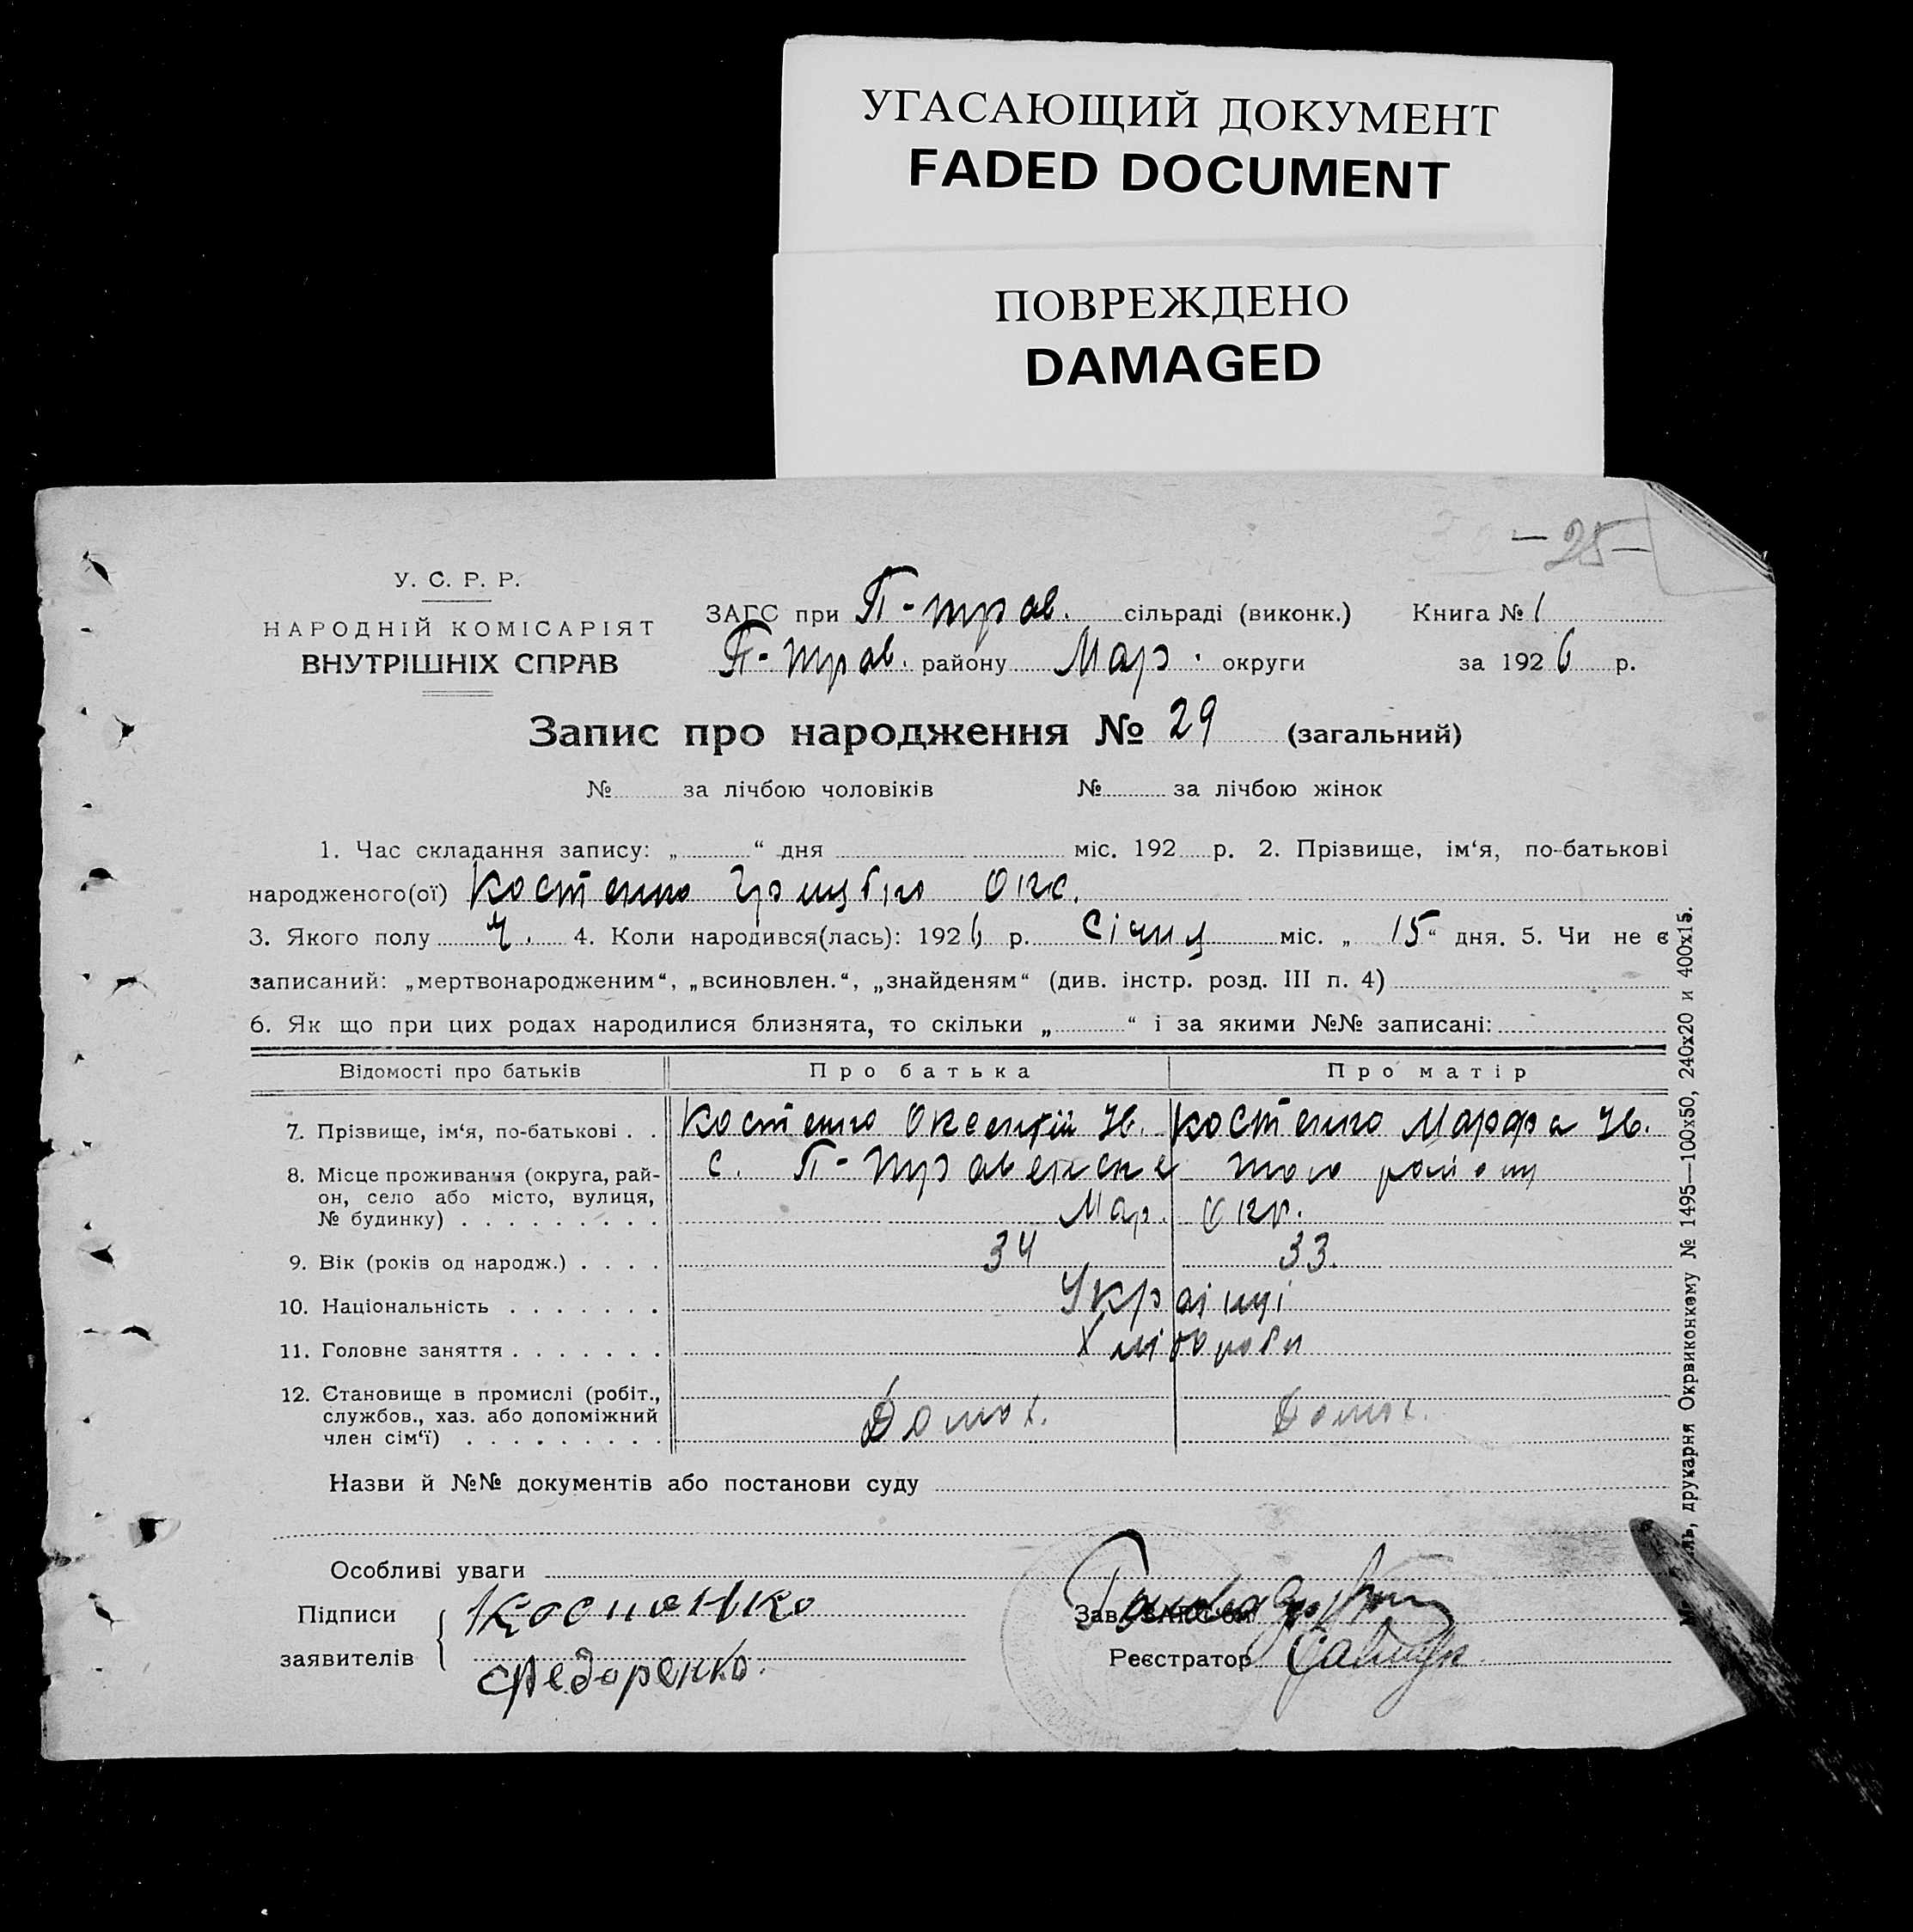 УГАСАЮЩИЙ ДОКУМЕНТ
FADED DOCUMENT
ПОВРЕЖДЕНО
DAMAGED
— 25 —
У. С. Р. Р.
НАРОДНІЙ КОМІСАРІЯТ
ВНУТРІШНІХ СПРАВ
ЗАГС при П-трав. сільраді (виконк.) Книга № 1
П-трав. району Мар. округи за 1926 р.
Запис про народження № 29 (загальний)
№ за лічбою чоловіків № за лічбою жінок
1. Час складання запису: „ “ дня міс. 192 р. 2. Прізвище, ім‘я, по-батькові
народженого(ої) Костенко Окс.
3. Якого полу ч. 4. Коли народився(лась): 1926 р. Січня міс. „ 15 “ дня. 5. Чи не є
записаний: „мертвонародженим“, „всиновлен.“, „знайденям“ (див. інстр. розд. III п. 4)
6. Як що при цих родах народилися близнята, то скільки „ “ і за якими №№ записані:
Відомості про батьків Про батька Про матір
7. Прізвище, ім‘я, по-батькові . . Костенко Оксентій Ів. Костенко Марфа Ів.
8. Місце проживання (округа, рай- с. П-Травенське того району
он, село або місто, вулиця,
№ будинку) . . . . . . . . . Мар. окр.
9. Вік (років од народж.) . . . . 34 33.
10. Національність . . . . . . . Українці
11. Головне заняття . . . . . . . Хлібороби
12. Становище в промислі (робіт.,
службов., хаз. або допоміжний Домог. Домог.
член сім‘ї) . . . . . . . . .
Назви й №№ документів або постанови суду
Особливі уваги
Підписи Костенко Зав. ЗАГС‘ом
заявителів Федоренко. Реєстратор
ль, друкарня Окрвиконкому № 1495—100х50, 240х20 и 400х15.